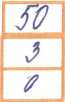 50
3
0